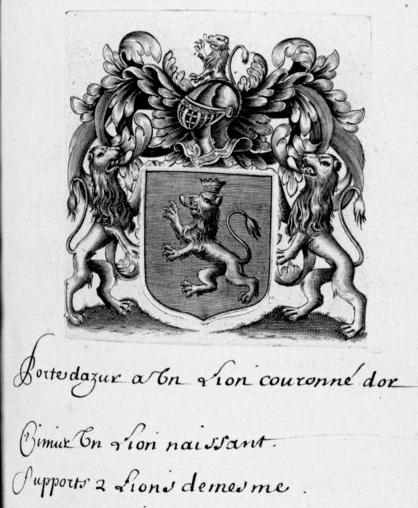 Porte dazur a Un Lion couronné dor
Cimier Un Lion naissant.
Supports 2 Lions de mesme.